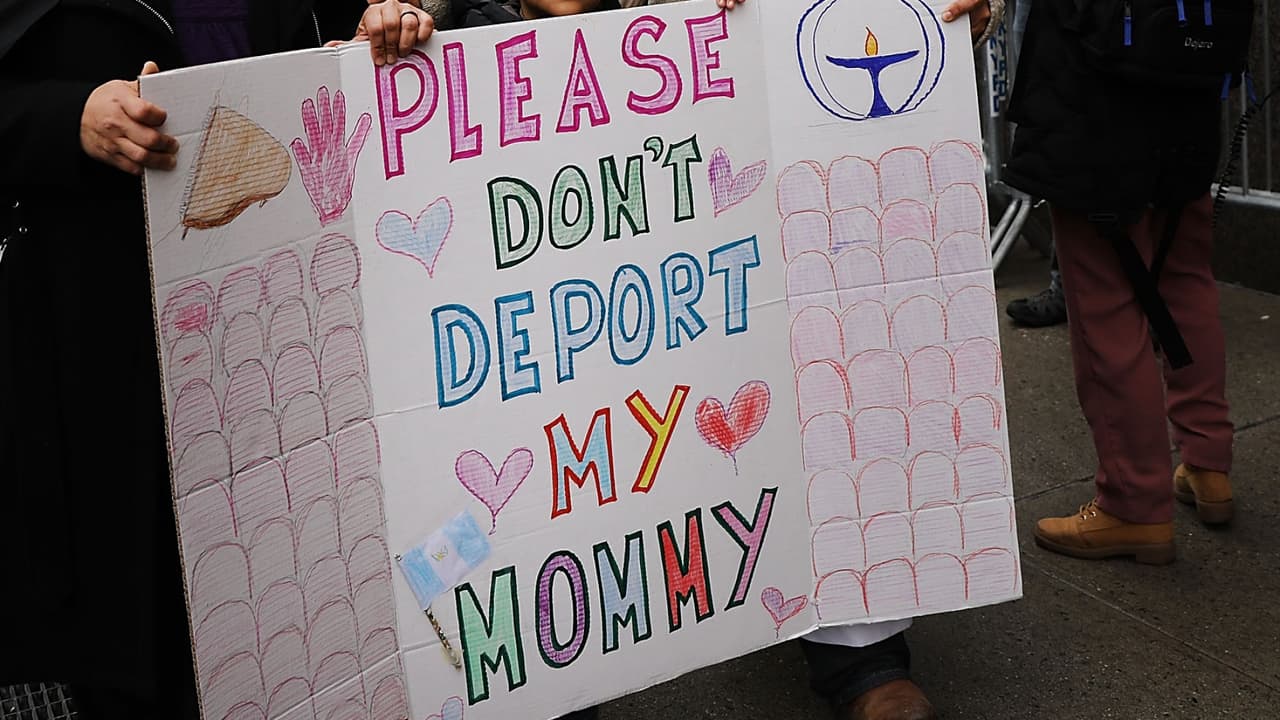 PLEASE
DON'T
DEPORT
MY
MOMMY